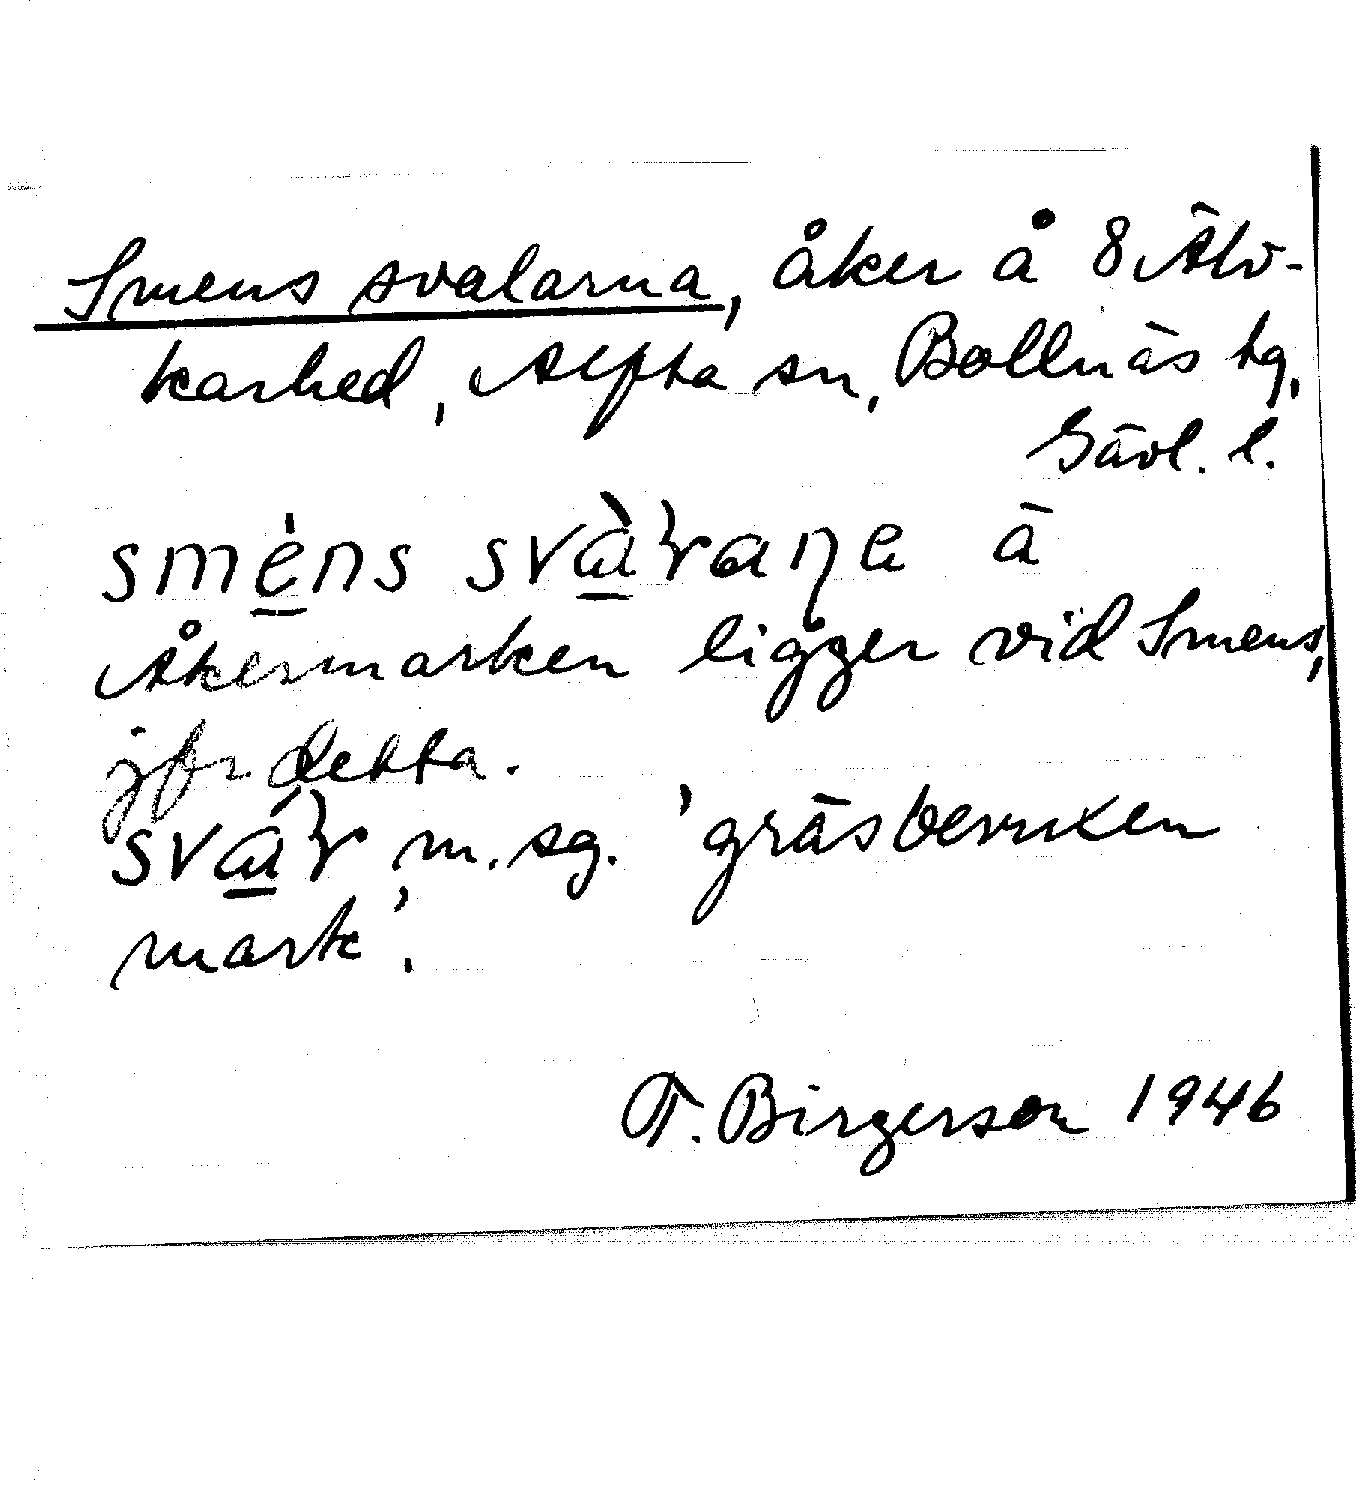 Smens svalarna, åker å 8 Älv-
karhed, Alfta sn, Bollnäs tg,
Gävl. l.
smèns svàɽaɳe ā
Åkermarken ligger vid Smens,
jfr detta.
sváɽ, m. sg. 'gräsbevuxen
mark'.
T. Birgerson 1946